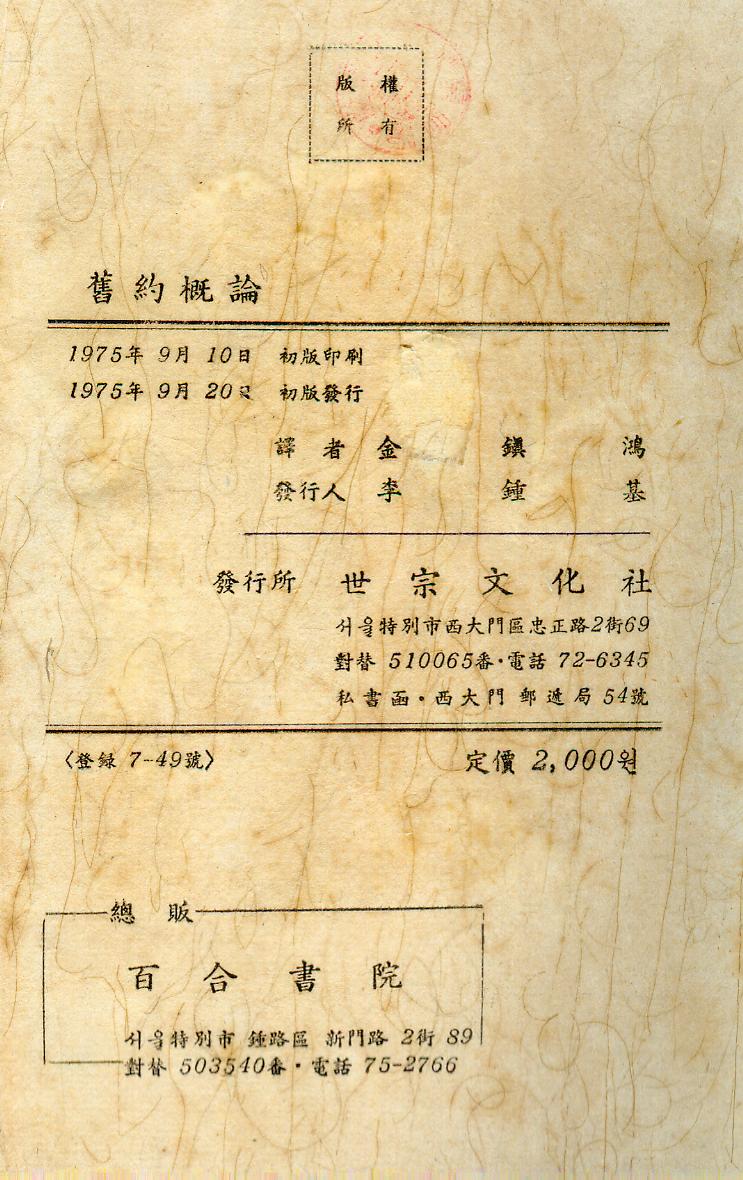 版權
所有
舊約概論
1975年 9月 10日 初版印刷
1975年 9月 20日 初版發行
譯者 金鎭鴻
發行人 李鍾基
發行所 世宗文化社
서울特別市西大門區忠正路2街69
對替 510065番·電話 72-6345
私書函·西大門郵遞局 54號
〈登録 7-49號〉
定價 2,000원
總販
百合書院
서울特別市 鍾路區 新門路 2街 89
對替 503540番·電話 75-2766